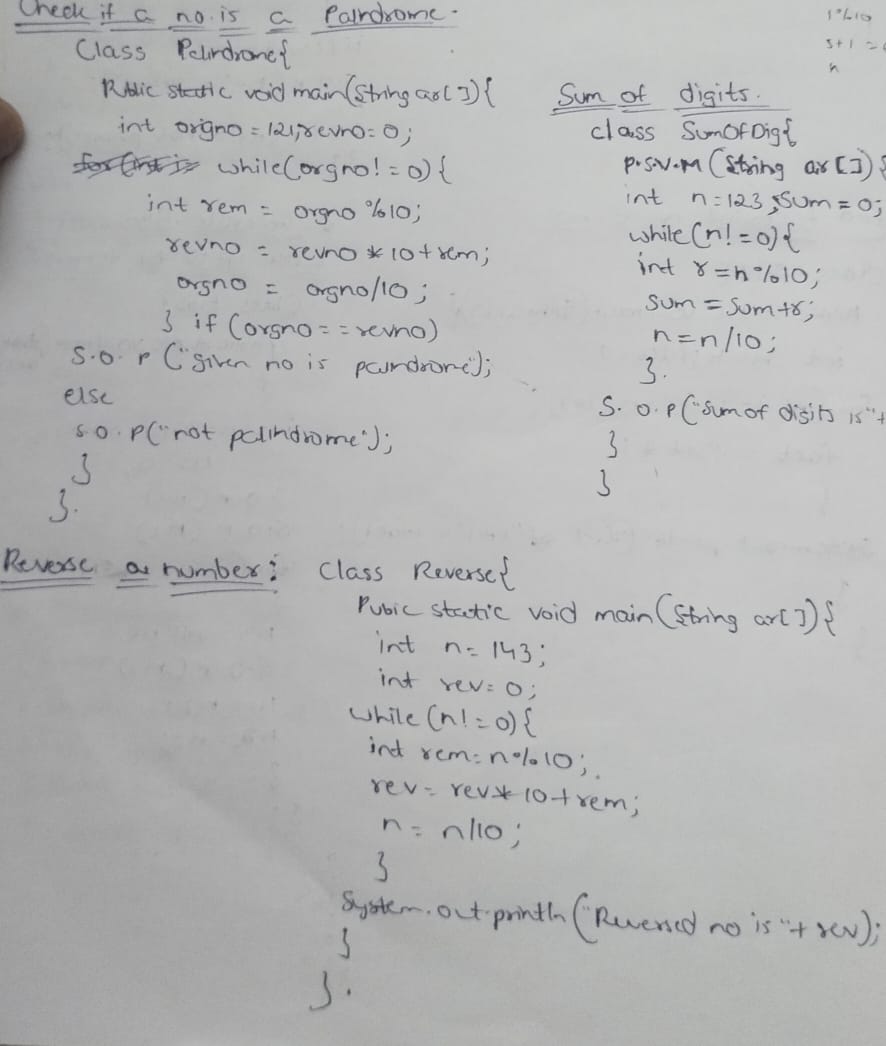 Check if a no. is a Palndrome.
Class Palindrome{
Public static void main(String ar[]){
int origno = 121, revno=0;
while(orgno! = 0){
int rem = orgno %10;
revno = revno * 10+rem;
orgno = orgno/10;
} if (orgno == revno)
S.O.P ("given no is palindrome");
else
S.O.P("not palindrome");
}
}.
1%10
s+1 =
n
Sum of digits.
class SumOfDig{
P.S.V.M (String ar[]){
int n=123, sum = 0;
while(n! = 0){
int r = n%10;
sum = sum+r;
n = n/10;
}.
S. O.P("Sum of digits is "+
}
}
Reverse a number:
Class Reverse{
Pubic static void main(String ar[]){
int n = 143;
int rev = 0;
while (n! = 0){
int rem = n%10;
rev = rev * 10 + rem;
n = n/10;
}
System.out.println("Reversed no is "+ rev);
}
}.